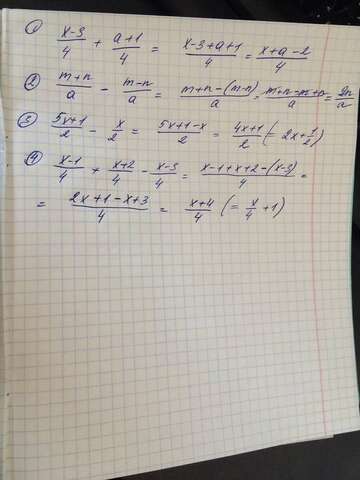 ① (x-3)/4 + (a+1)/4 = (x-3+a+1)/4 = (x+a-2)/4
② (m+n)/a - (m-n)/a = (m+n-(m-n))/a = (m+n-m+n)/a = 2n/a
③ (5x+1)/2 - x/2 = (5x+1-x)/2 = (4x+1)/2 (= 2x+1/2)
④ (x-1)/4 + (x+2)/4 - (x-3)/4 = (x-1+x+2-(x-3))/4 =
= (2x+1-x+3)/4 = (x+4)/4 (= x/4 +1)